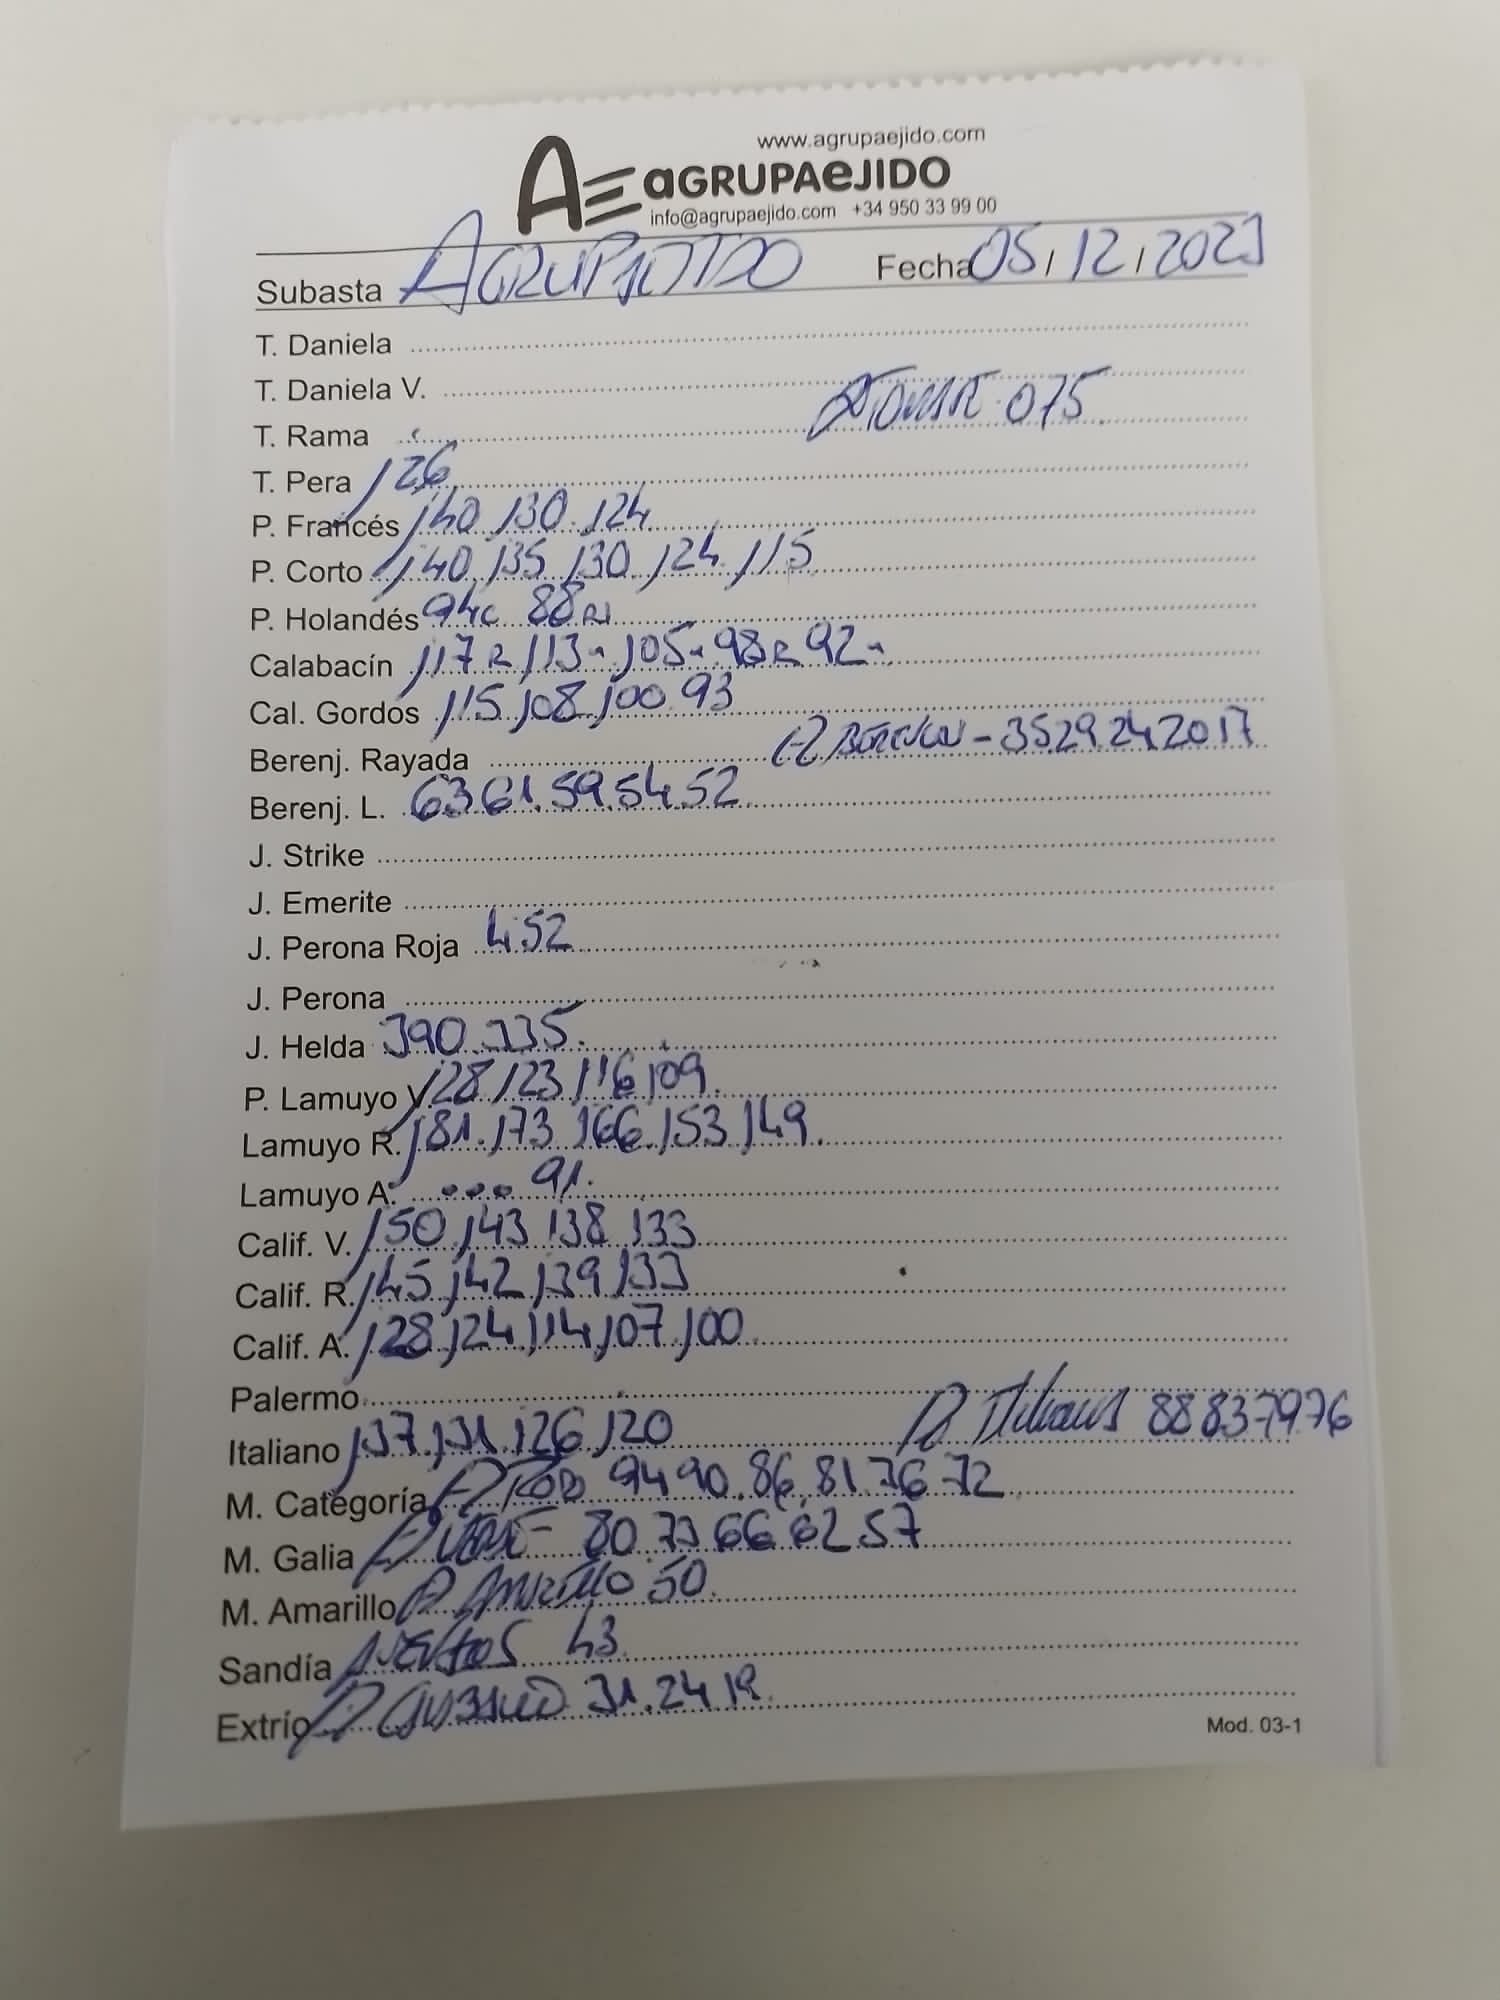 www.agrupaejido.com
AE aGRUPAeJIDO
info@agrupaejido.com +34 950 33 99 00
Subasta AGRUPAEJIDO Fecha 05/12/2023
T. Daniela
T. Daniela V.
T. Rama 075
T. Pera 126
P. Francés 140 130 124
P. Corto 140 135 130 124 115
P. Holandés 94c 88R
Calabacín 117R 113- 105- 98R 92-
Cal. Gordos 115 108 100 93
Berenj. Rayada - 35 29 24 20 17
Berenj. L. 63 61 59 54 52
J. Strike
J. Emerite
J. Perona Roja 452
J. Perona
J. Helda 390 335
P. Lamuyo V. 128 123 116 109
Lamuyo R. 181 173 166 153 149
Lamuyo A. 91
Calif. V. 150 143 138 133
Calif. R. 145 142 139 133
Calif. A. 128 124 114 107 100
Palermo
Italiano 137 131 126 120 D Italiano 88 83 79 76
M. Categoría D Rojo 94 90 86 81 76 72
M. Galia D Verde 80 73 66 62 57
M. Amarillo D Amarillo 50
Sandía 43
Extrío 31 24 19
Mod. 03-1